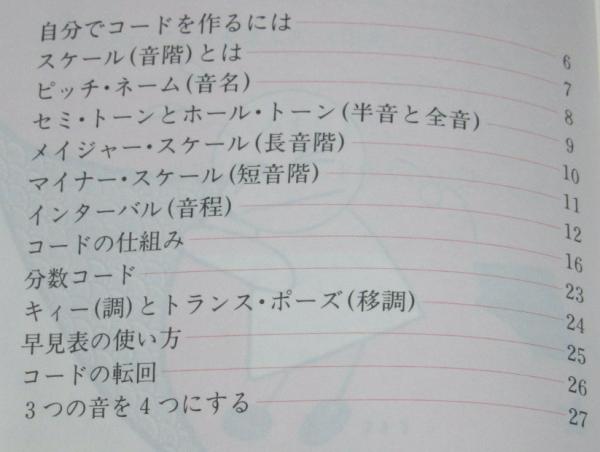 自分でコードを作るには 6
スケール(音階)とは 7
ピッチ・ネーム(音名) 8
セミ・トーンとホール・トーン(半音と全音) 9
メイジャー・スケール(長音階) 10
マイナー・スケール(短音階) 11
インターバル(音程) 12
コードの仕組み 16
分数コード 23
キィー(調)とトランス・ポーズ(移調) 24
早見表の使い方 25
コードの転回 26
3つの音を4つにする 27